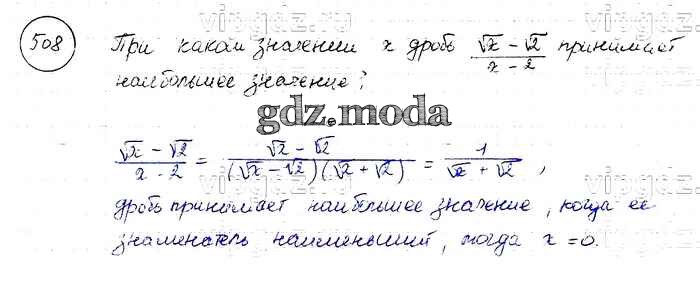 vipgdz.com
508 При каком значении x дробь (√x − √2)/(x − 2) принимает
наибольшее значение?
gdz.moda
(√x − √2)/(x − 2) = (√x − √2)/((√x − √2)(√x + √2)) = 1/(√x + √2) ,
дробь принимает наибольшее значение, когда ее
знаменатель наименьший, тогда x = 0.